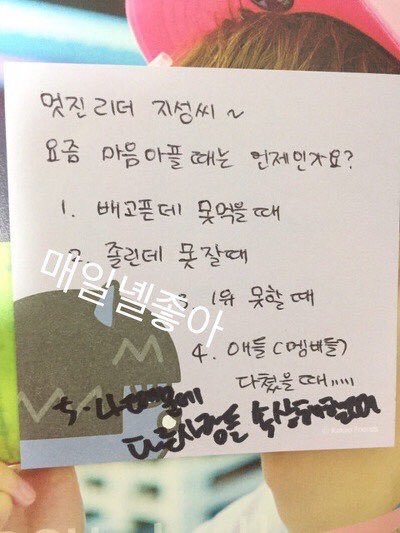 멋진 리더 지성씨~
요즘 마음아플 때는 언제인가요?
1. 배고픈데 못먹을때
2. 졸린데 못잘때
3 1위 못할때
4. 애들(멤버들)
다쳤을때.....
5. 나때문에
사람을 속상해할때
매일넴좋아
© Kakao Friends